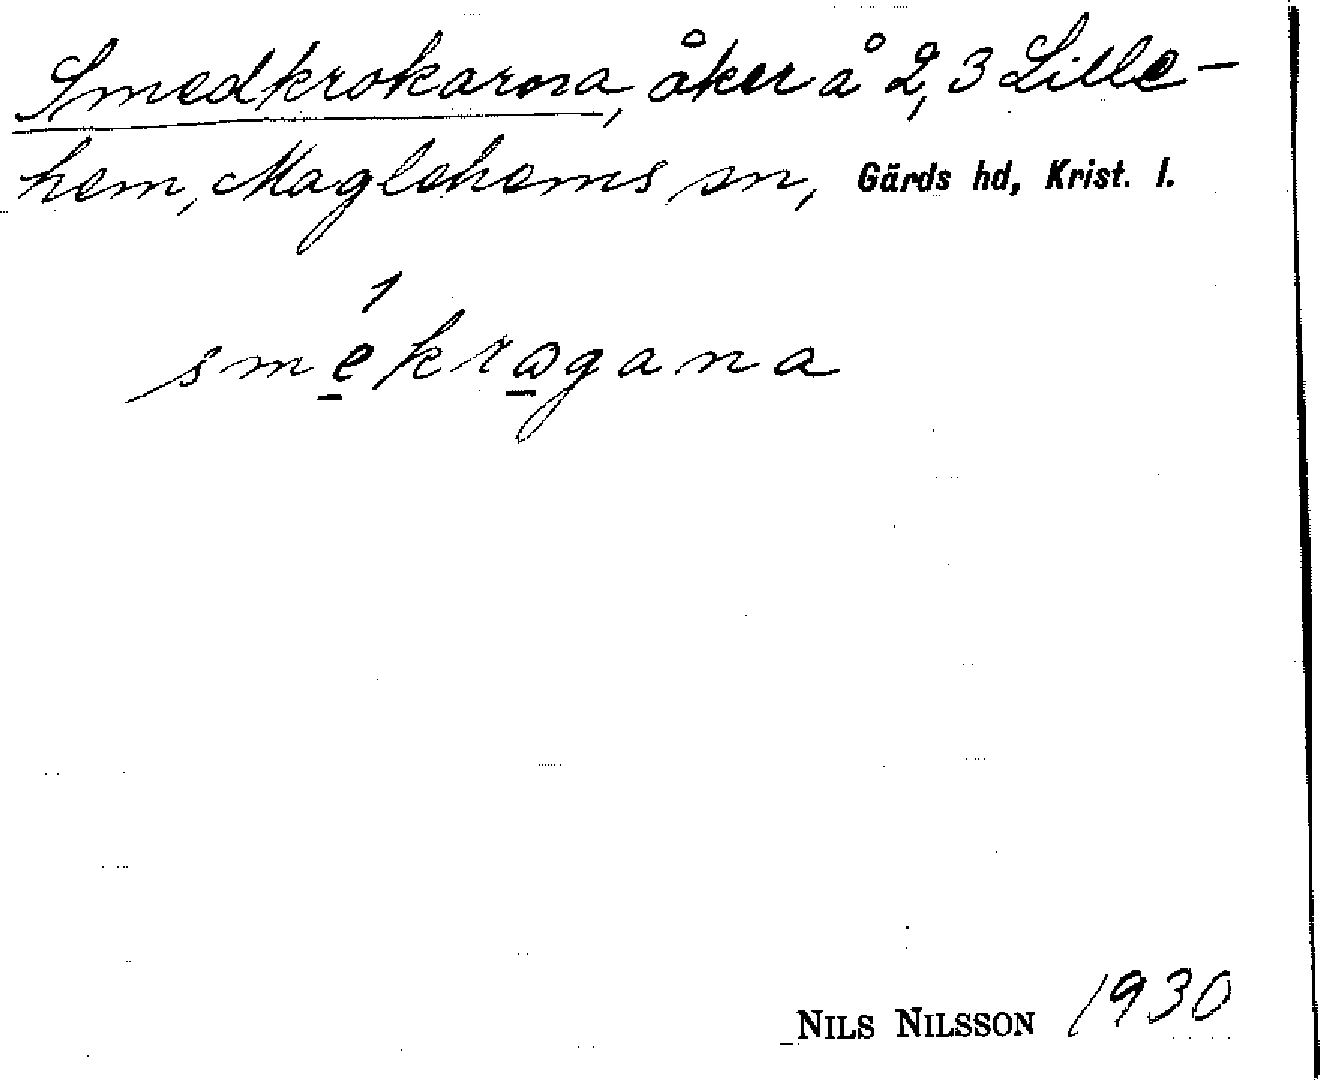 Smedkrokarna, åker å 2,3 Lille-
hem, Maglehems sn, Gärds hd, Krist. l.
sme̱´krɷ̱gana
NILS NILSSON 1930